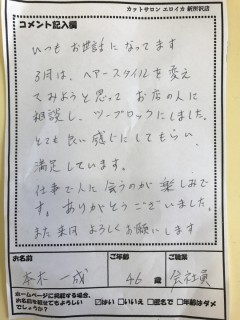 カットサロン エロイカ 新所沢店
コメント記入欄
いつもお世話になってます
3月は、ヘアースタイルを変え
てみようと思って お店の人に
相談し、ツーブロックにしました。
とても良い感じにしてもらい
満足しています。
仕事で人に会うのが楽しみで
す。ありがとうございました。
また来月 よろしくお願いします
お名前 ご年齢 ご職業
一成 46 歳 会社員
ホームページに掲載する場合、
お名前を載せてもよろしい
でしょうか?
□はい □いいえ □匿名で □年齢はダメ